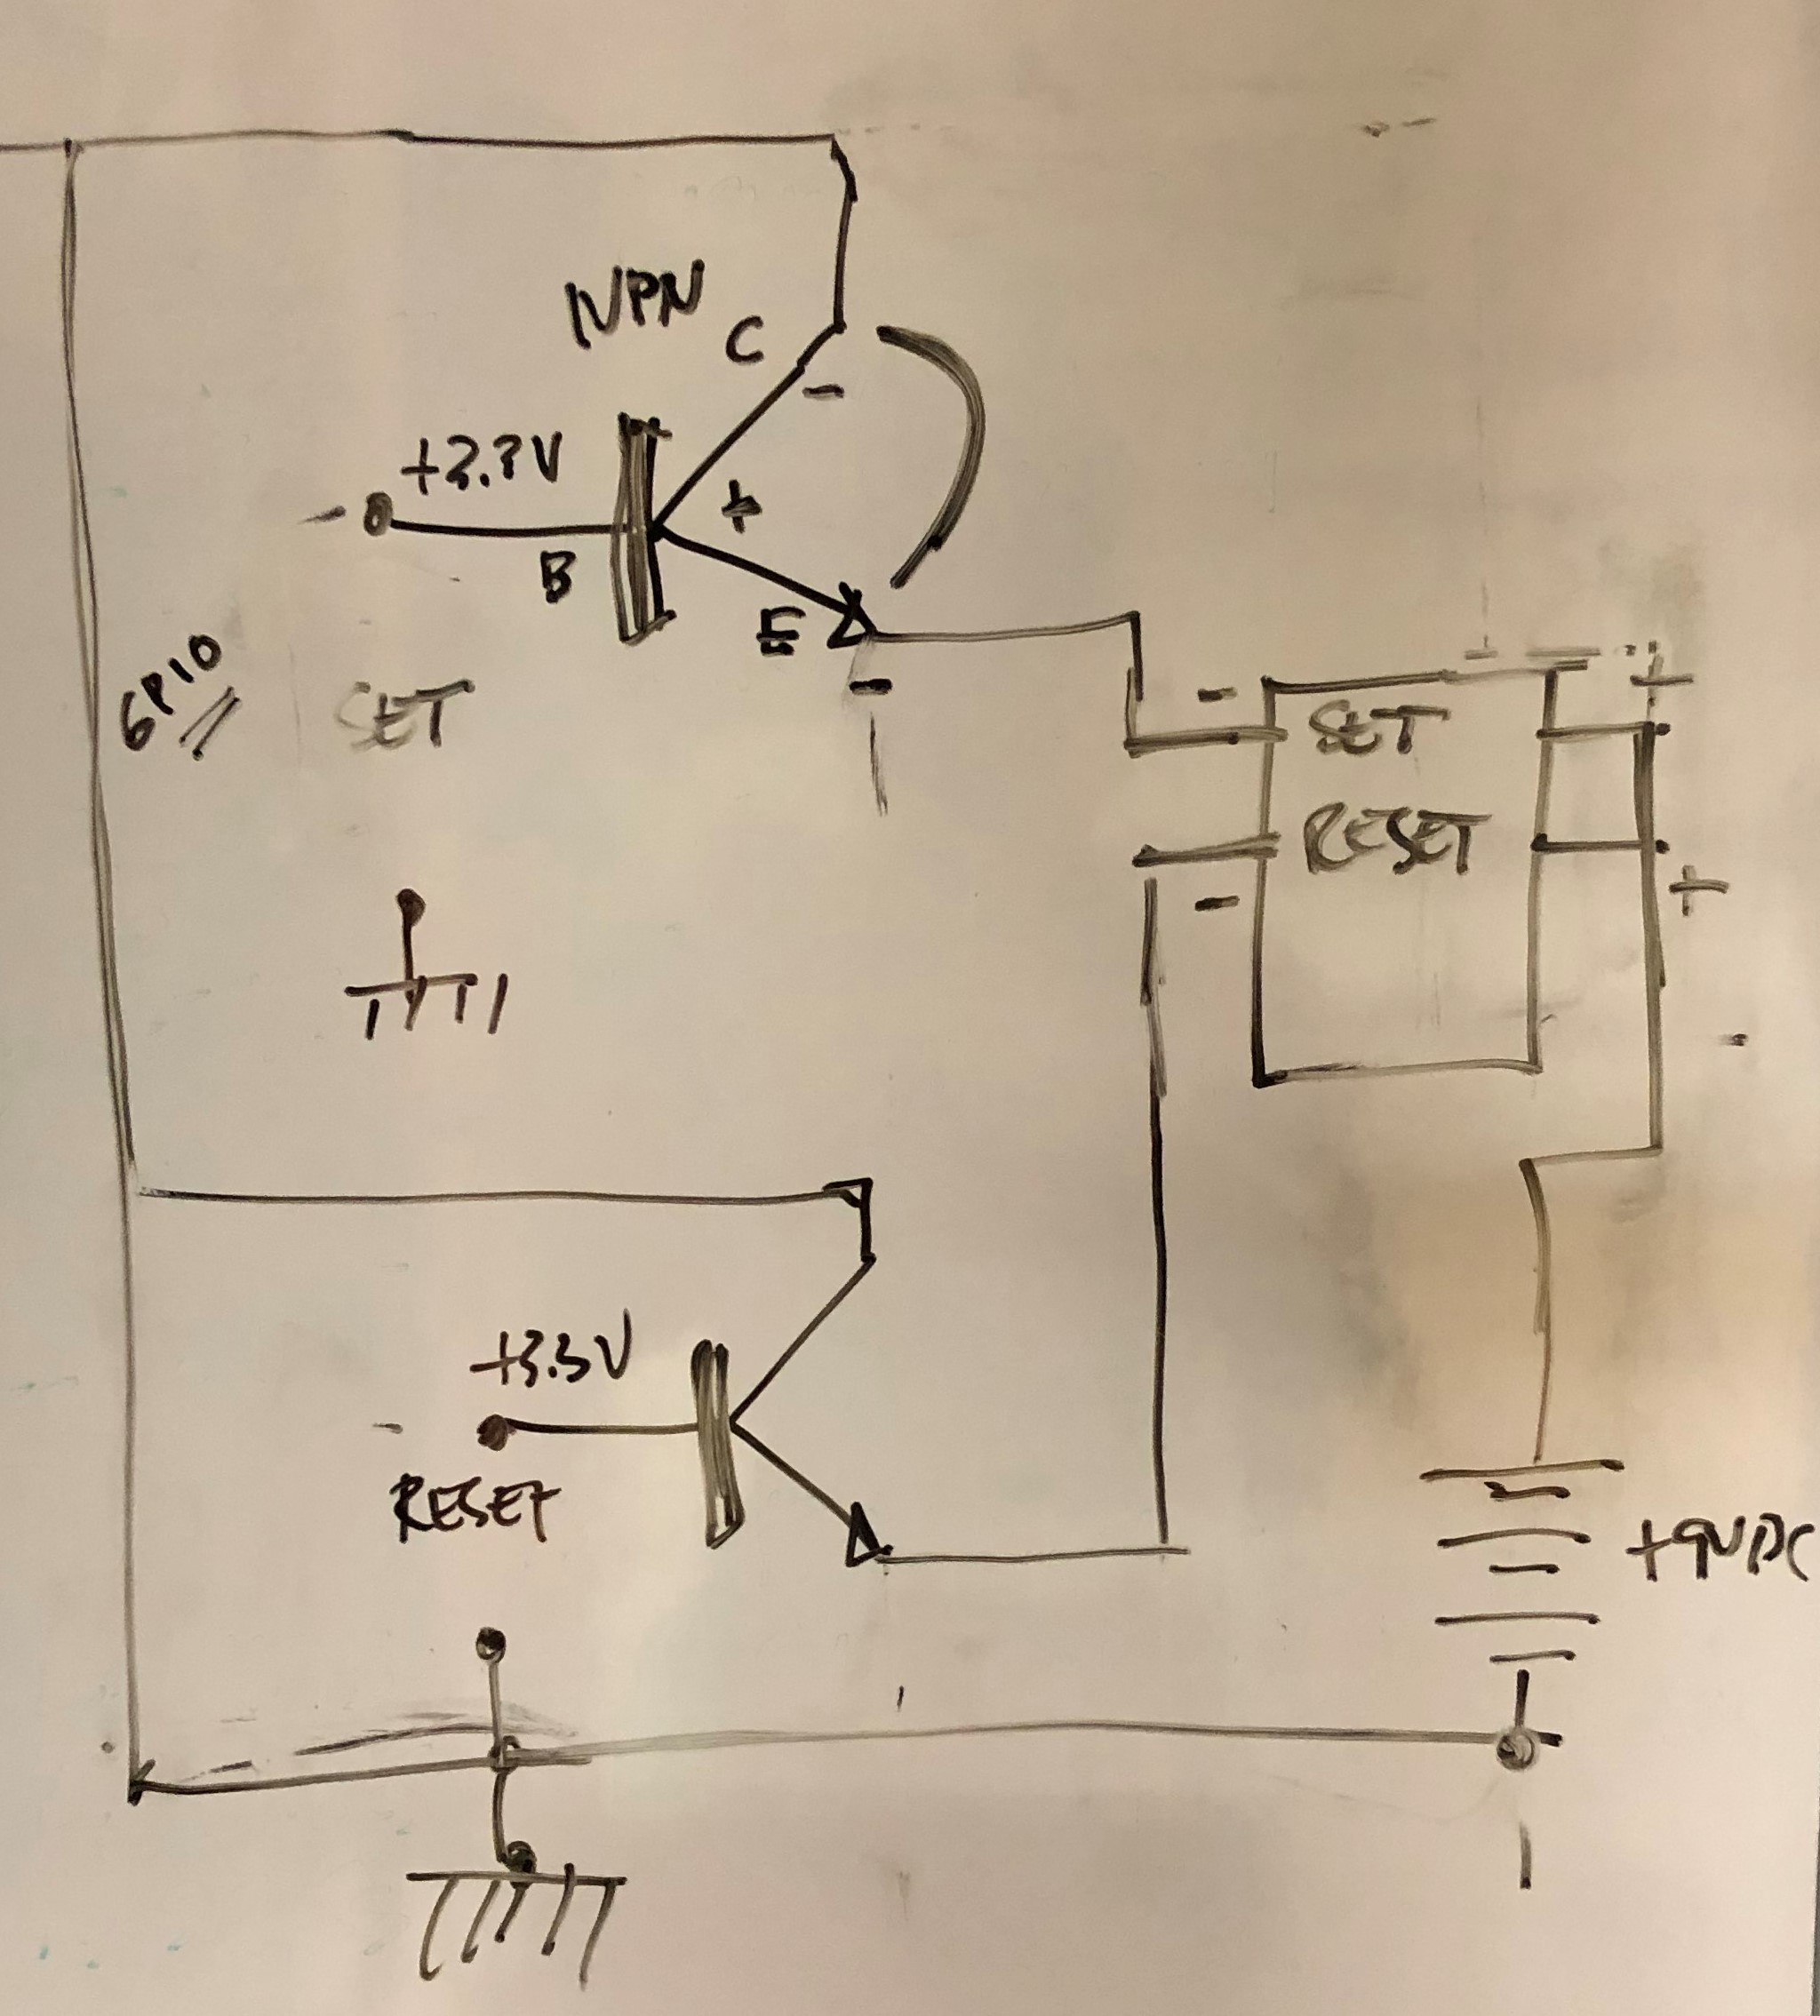 NPN
C
-
+3.3V
+
-
B
E
-
GPIO
SET
-
SET
+
RESET
-
+
+3.3V
-
RESET
+9VDC